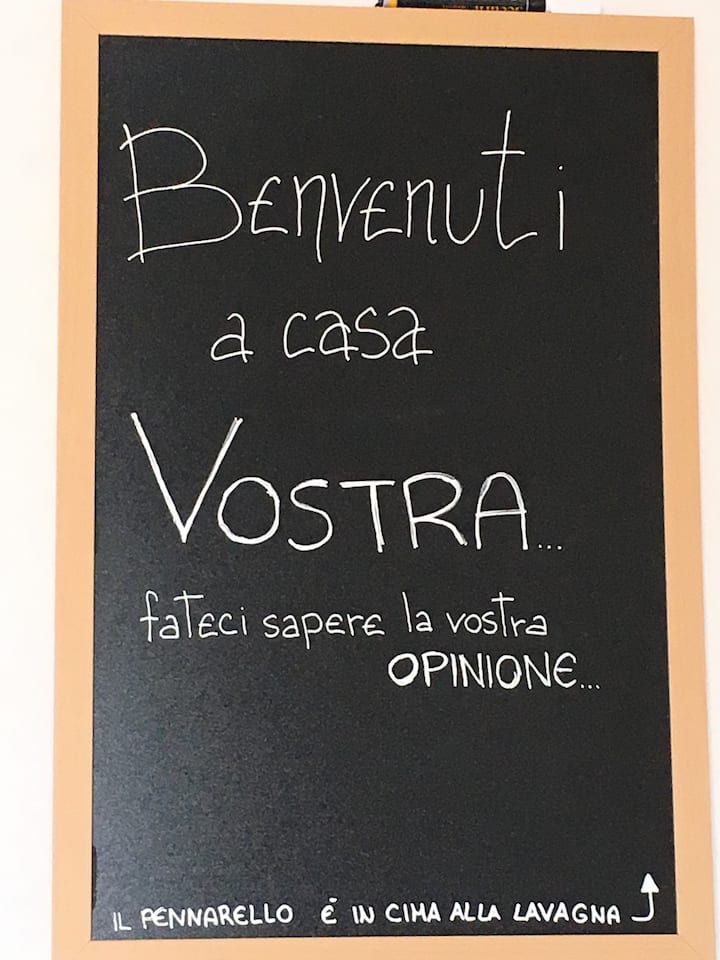 Benvenuti
a casa
VOSTRA...
fateci sapere la vostra
OPINIONE...
IL PENNARELLO È IN CIMA ALLA LAVAGNA